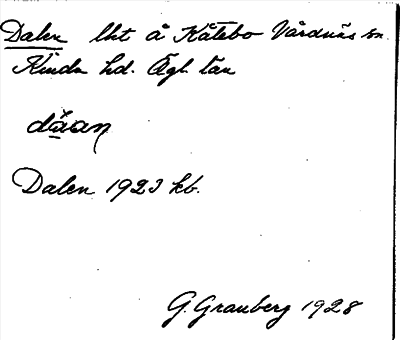 Dalen lht å Kåtebo Vårdnäs sn
Kinda hd. Ögl. län
dáan
Dalen 1923 kb.
G. Granberg 1928